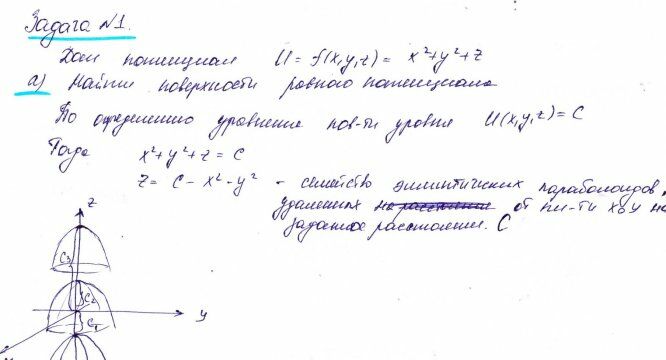 Задача №1.
Дан потенциал U = f(x,y,z) = x²+y²+z
а) Найти поверхности равного потенциала
По определению уравнение пов-ти уровня U(x,y,z) = C
Тогда x²+y²+z = C
z = C - x² - y² - семейство эллиптических параболоидов,
удаленных от пл-ти xOy на
заданное расстояние. C
z
C₃
C₂
y
C₁